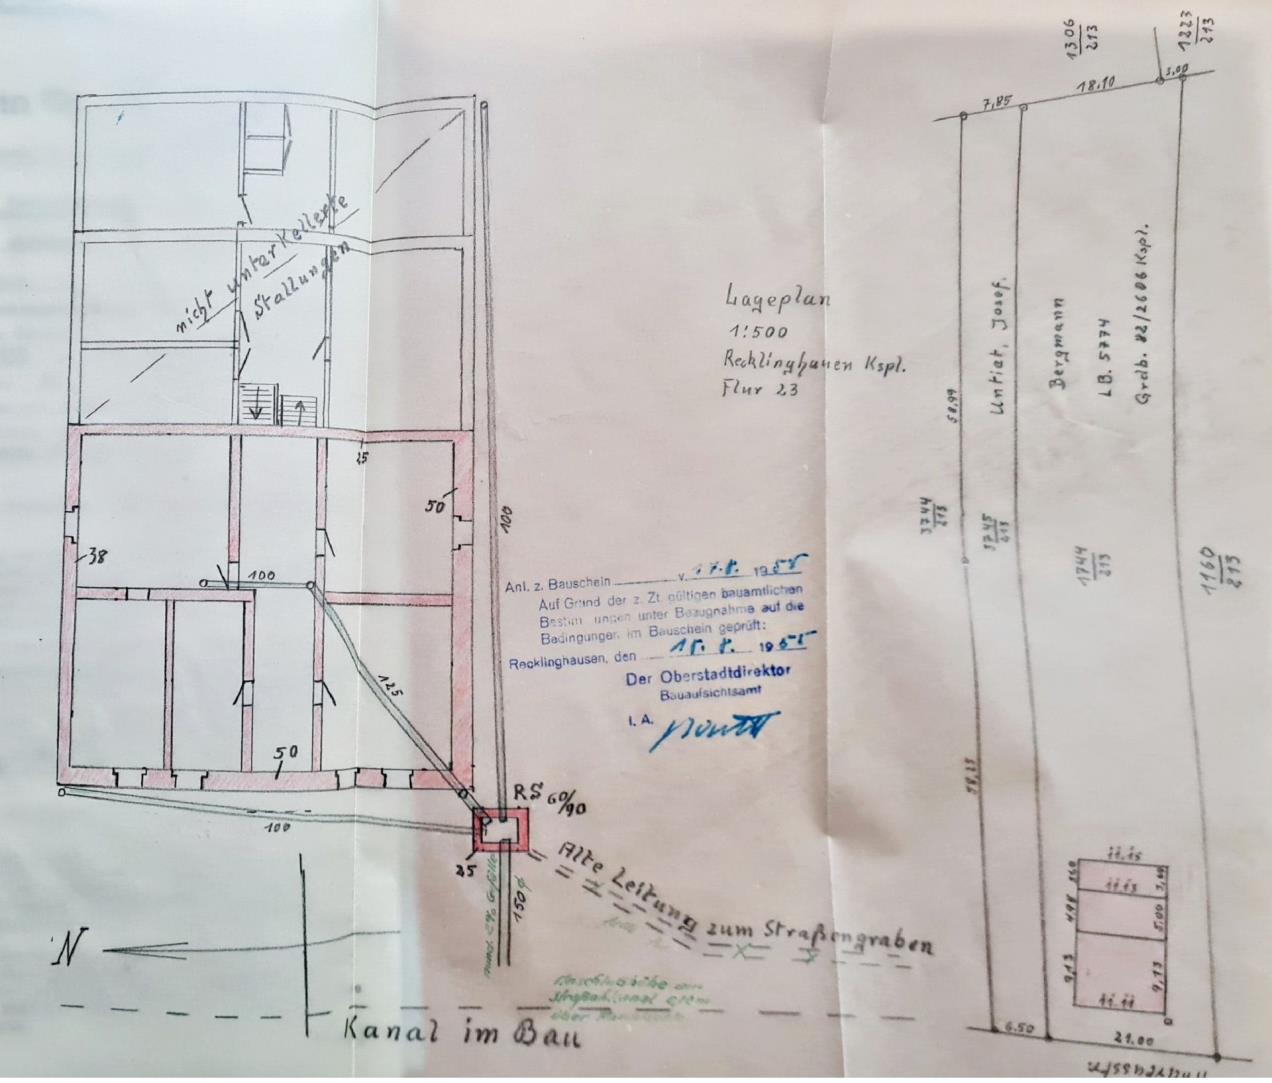 nicht unterkellerte
Stallungen
25
50
38
100
100
125
50
100
RS 60/90
25
150 ∅
Alte Leitung zum Straßengraben
N
Kanal im Bau
Anl. z. Bauschein v. 17.8. 1955
Auf Grund der z. Zt. gültigen bauamtlichen
Bestimmungen unter Bezugnahme auf die
Bedingungen im Bauschein geprüft:
Recklinghausen, den 18. 8. 1955
Der Oberstadtdirektor
Bauaufsichtsamt
I. A.
Lageplan
1:500
Recklinghausen Kspl.
Flur 23
1306
213
1223
213
7,85
18,10
3,00
58,99
Untiet, Josef.
Bergmann
LB. 5774
Grdb. 82/2606 Kspl.
3744
213
3745
213
1744
213
1160
213
11.15
11.13
4,98
5,00
9,13
9,13
11.11
6.50
21.00